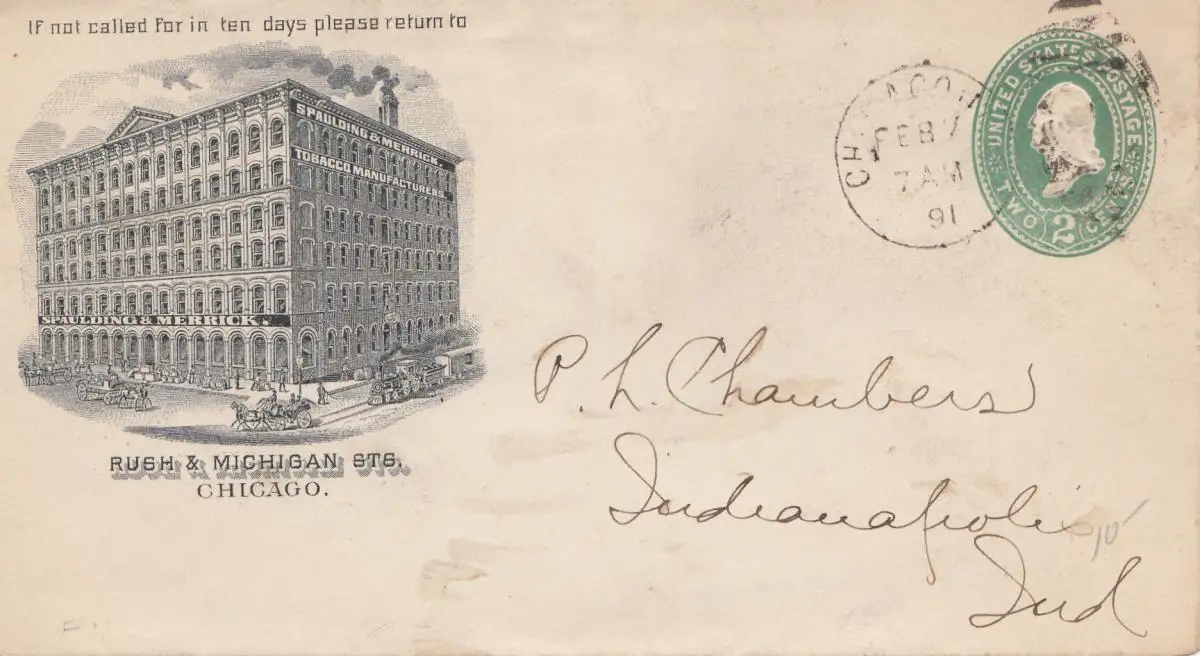 If not called for in ten days please return to
SPAULDING & MERRICK.
TOBACCO MANUFACTURERS
SPAULDING & MERRICK.
RUSH & MICHIGAN STS.
CHICAGO.
CHICAGO
FEB 7
7 AM
91
UNITED STATES POSTAGE
TWO 2 CENTS
P. L. Chambers
Indianapolis
Ind
10